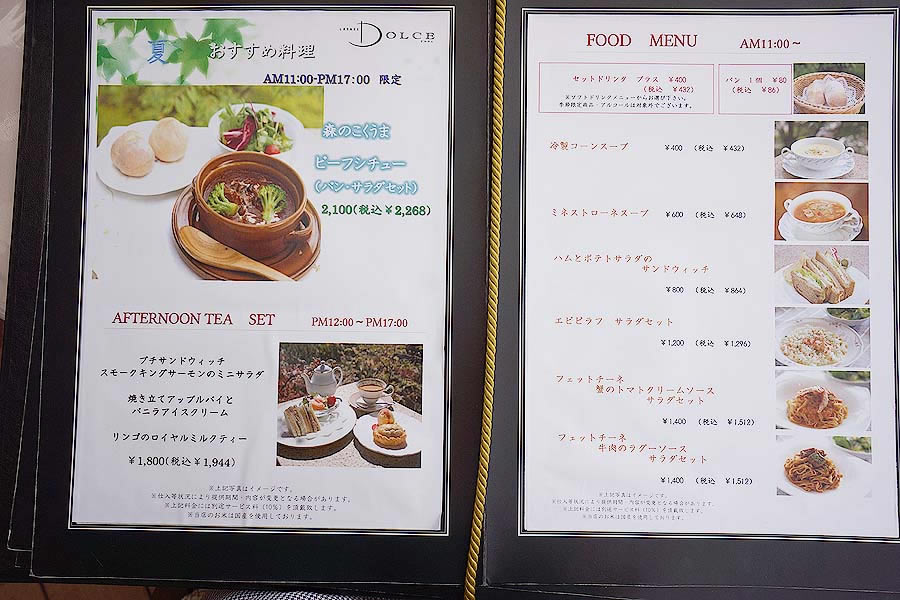 夏 おすすめ料理
DOLCE
AM11:00-PM17:00 限定
森のこくうま
ビーフシチュー
(パン・サラダセット)
2,100(税込￥2,268)
AFTERNOON TEA SET PM12:00～PM17:00
プチサンドウィッチ
スモークキングサーモンのミニサラダ
焼き立てアップルパイと
バニラアイスクリーム
リンゴのロイヤルミルクティー
￥1,800(税込￥1,944)
※上記写真はイメージです。
※仕入等状況により提供期間・内容が変更となる場合があります。
※上記料金には別途サービス料（10％）を頂戴致します。
※当店のお米は国産を使用しております。
FOOD MENU AM11:00～
セットドリンク プラス ￥400
(税込 ￥432)
※ソフトドリンクメニューからお選び下さい。
季節限定商品・アルコールは対象外でございます。
パン 1個 ￥80
(税込 ￥86)
冷製コーンスープ ￥400 (税込 ￥432)
ミネストローネスープ ￥600 (税込 ￥648)
ハムとポテトサラダの
サンドウィッチ
￥800 (税込 ￥864)
エビピラフ サラダセット
￥1,200 (税込 ￥1,296)
フェットチーネ
蟹のトマトクリームソース
サラダセット
￥1,400 (税込 ￥1,512)
フェットチーネ
牛肉のラグーソース
サラダセット
￥1,400 (税込 ￥1,512)
※上記写真はイメージです。
※仕入等状況により提供期間・内容が変更となる場合があります。
※上記料金には別途サービス料（10％）を頂戴致します。
※当店のお米は国産を使用しております。